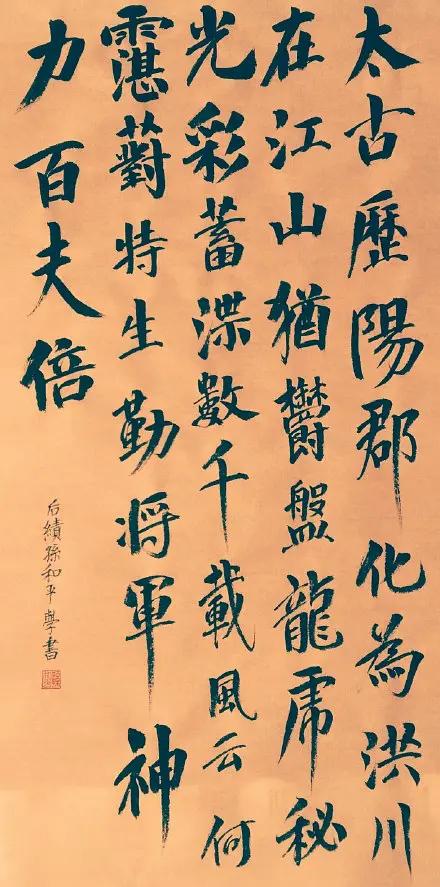 太古歷陽郡化為洪川
在江山猶鬱盤龍虎秘
光彩蓄渫數千載風云何
霮薱特生勤将軍神
力百夫倍
后績孫和平學書